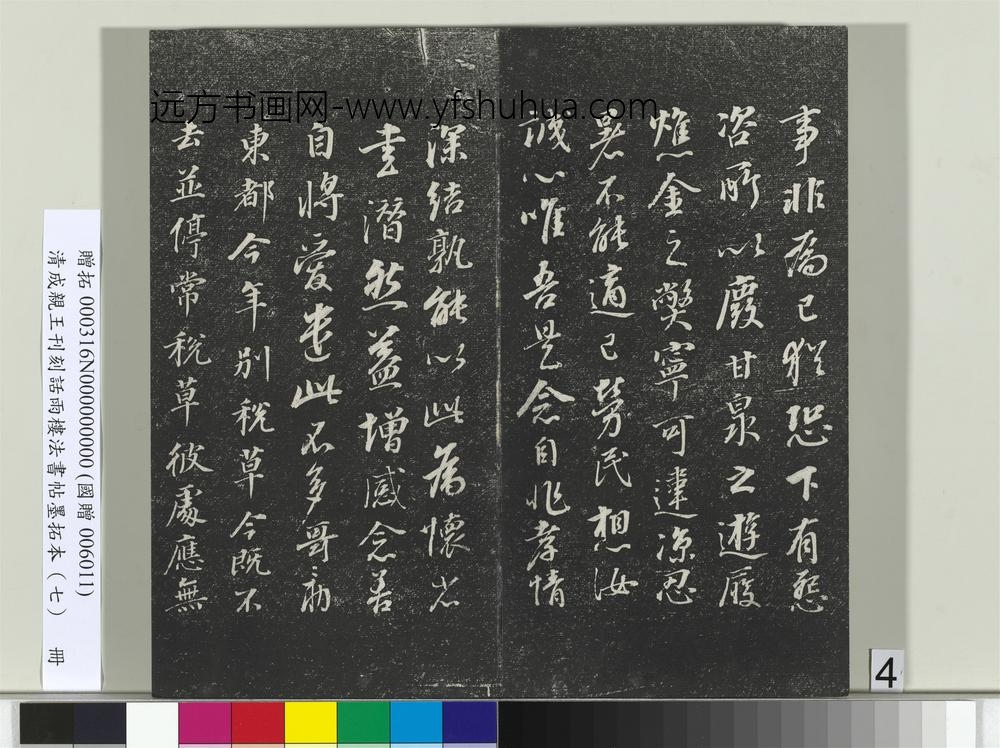 远方书画网-www.yfshuhua.com
事非為己猶恐下有怨
咨所以廢甘泉之遊履
燋金之獘寧可違涼忍
暑不能適己勞民想汝
誠心唯吾是念自非孝情
深結孰能以此為懷省
書潸然益增感念善
自將愛遣此不多哥勑
東都今年別稅草今既不
去並停常稅草彼處應無
贈拓 000316N000000000(國贈 006011)
清成親王刊刻話雨樓法書帖墨拓本(七) 冊
4